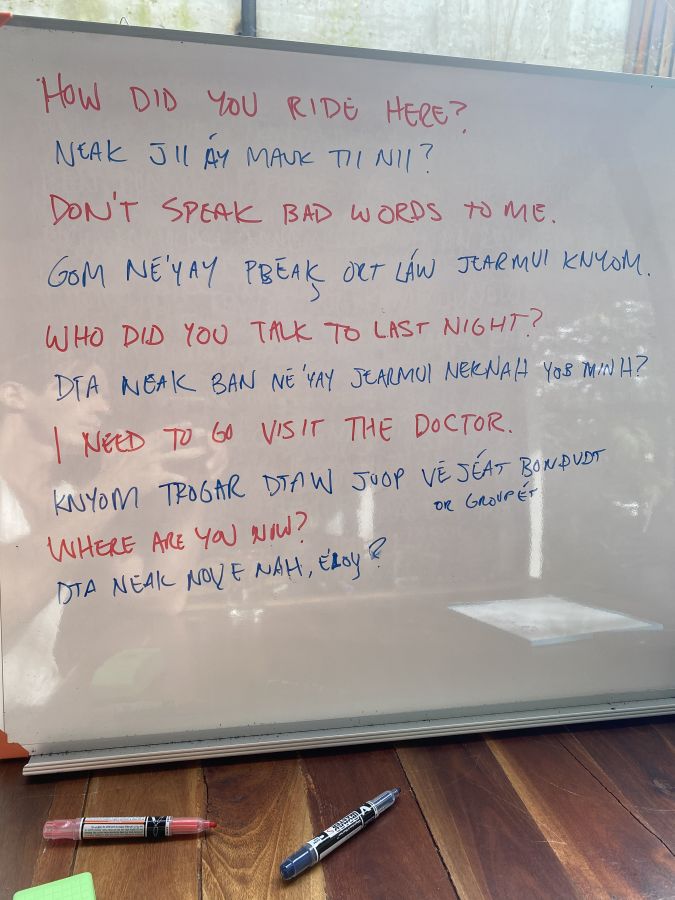 HOW DID YOU RIDE HERE?
NEAK JII ÁY MAUK TII NII?
DON'T SPEAK BAD WORDS TO ME.
GOM NE'YAY PBEAK ORT LÁW JEARMUI KNYOM.
WHO DID YOU TALK TO LAST NIGHT?
DTA NEAK BAN NE'YAY JEARMUI NEKNAH YOB MINH?
I NEED TO GO VISIT THE DOCTOR.
KNYOM TROGAR DTAW JUOP VĒJÉAT BONDUDT
OR GROUPÉT
WHERE ARE YOU NOW?
DTA NEAK NOVE NAH, ÉLOY?